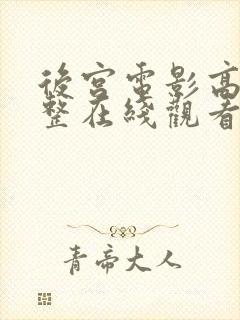 後宮電影高
整在綫觀看
青帝大人